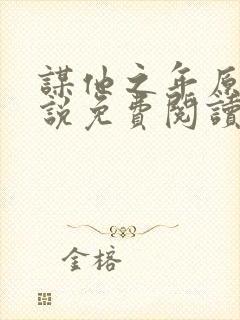 謀他之年原
說免費閱讀
金榕